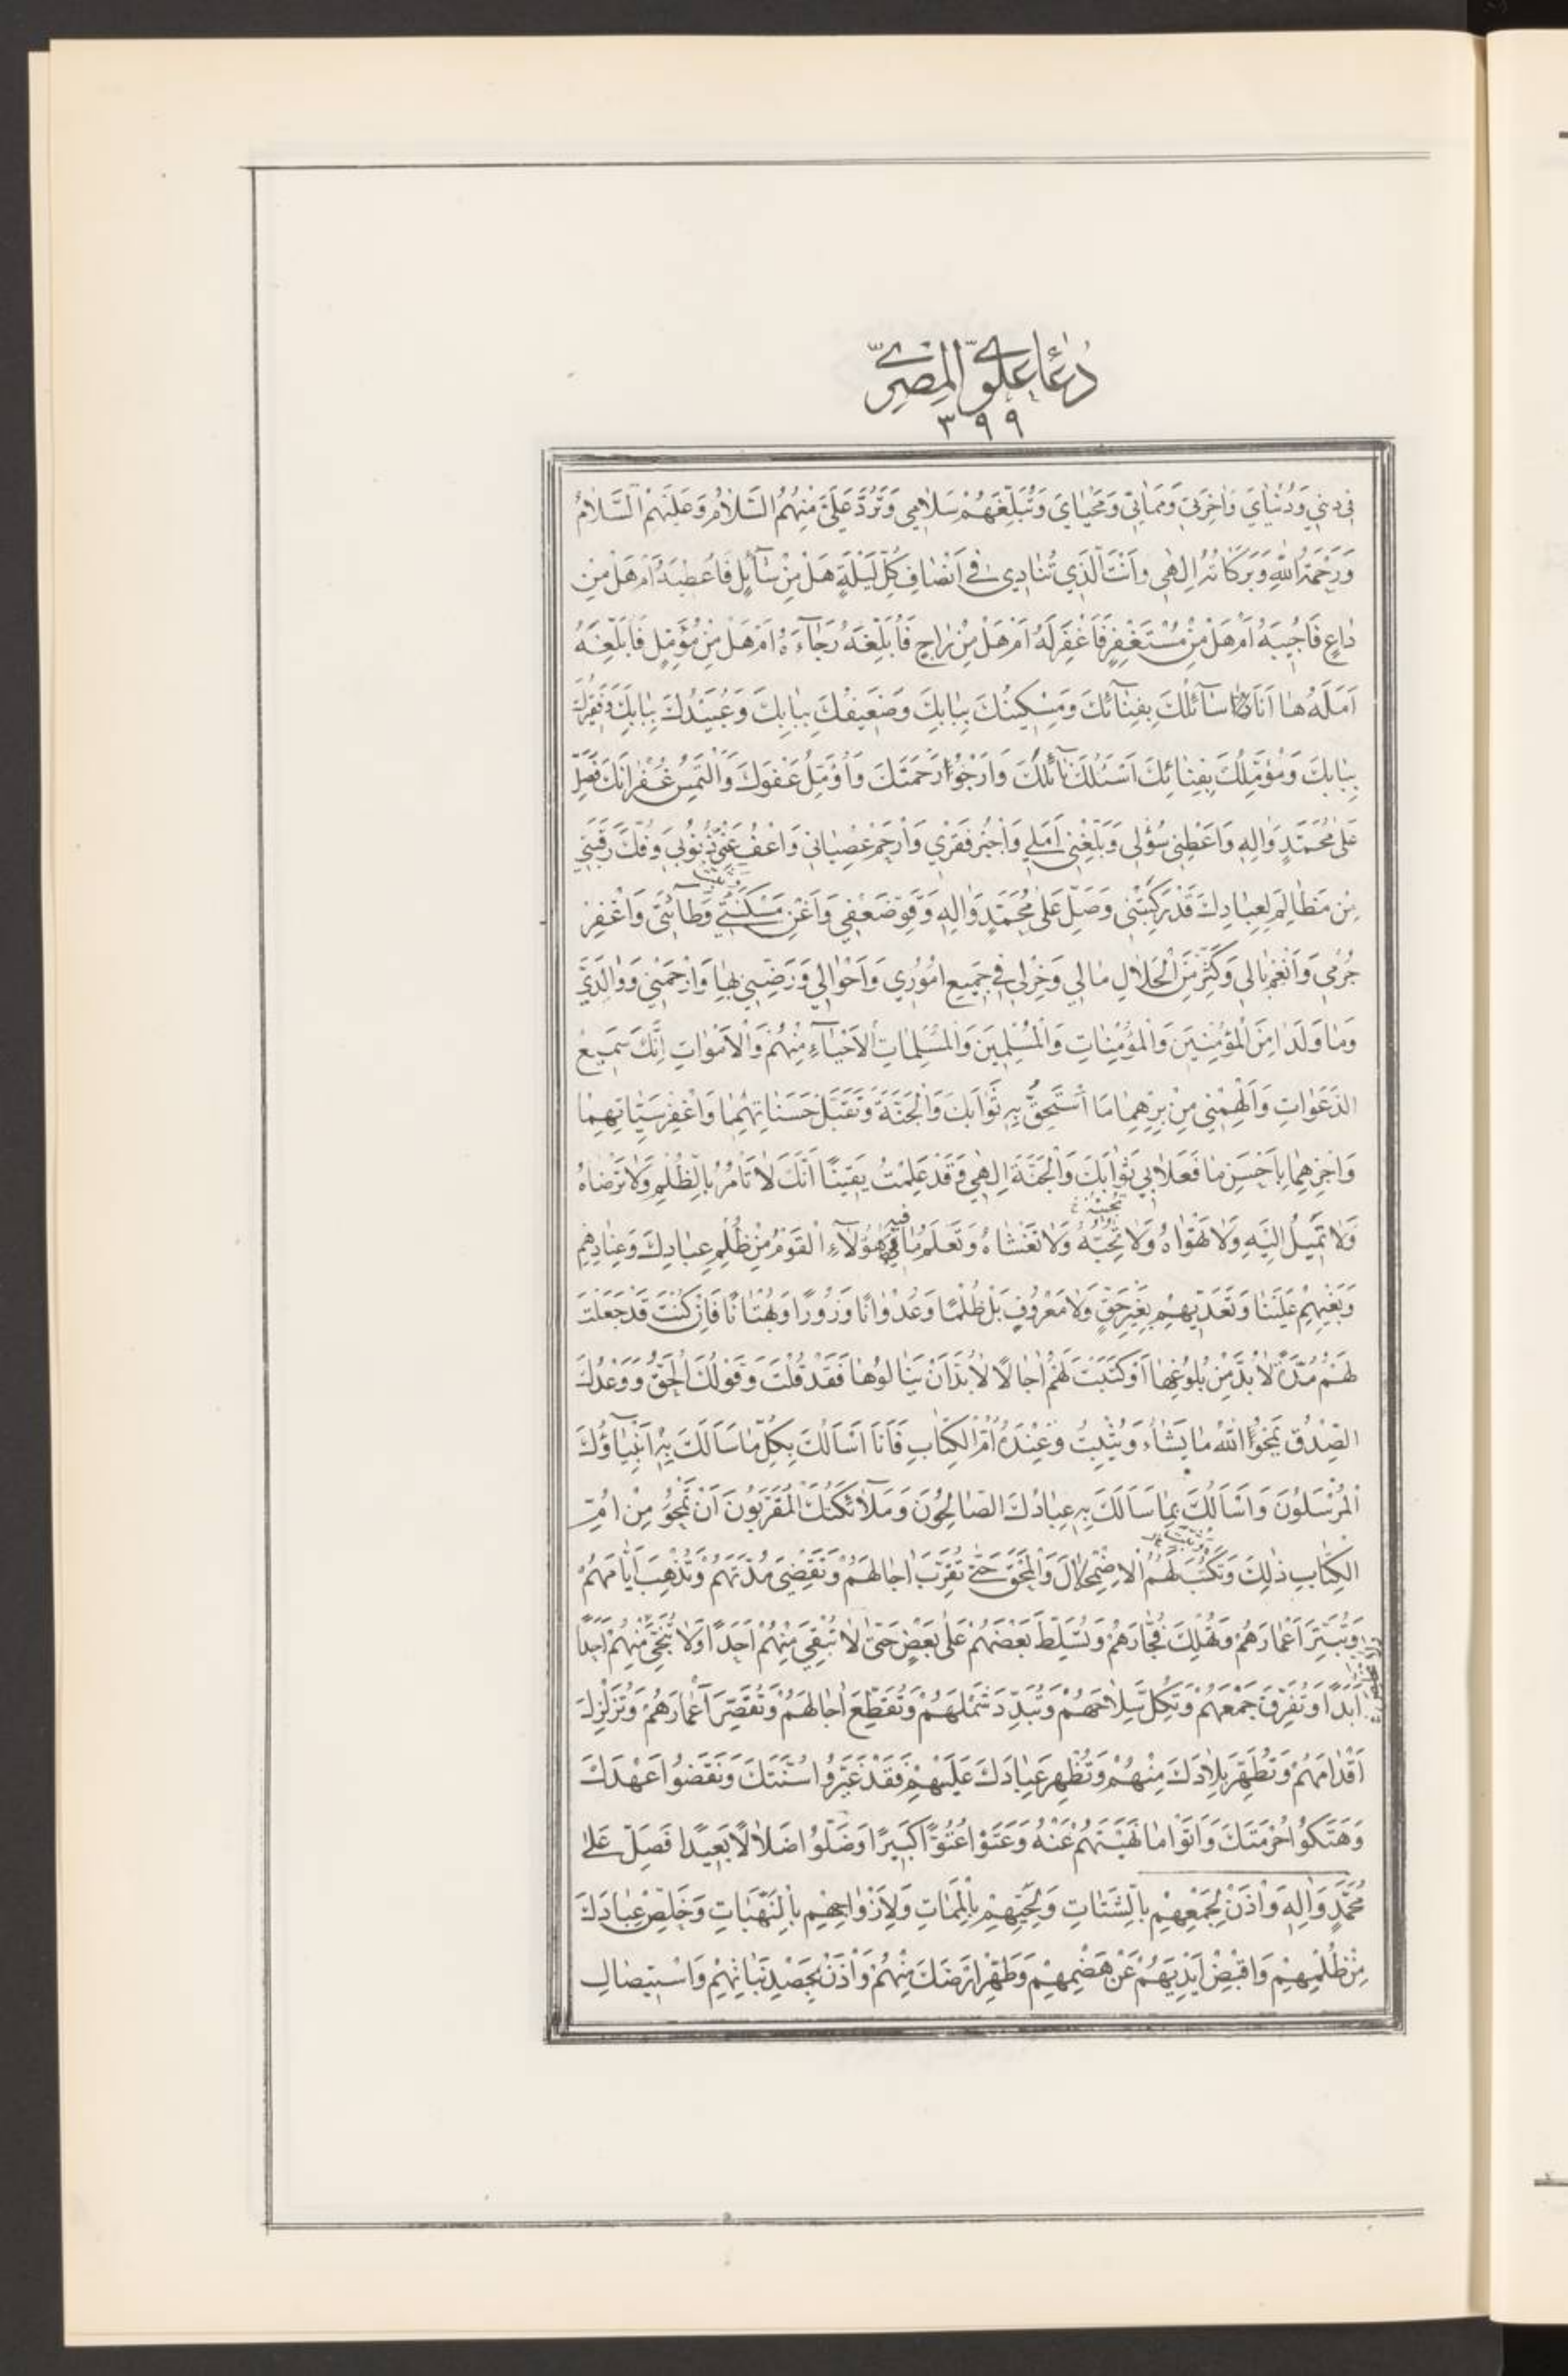 دُعَاءِ عَلَوِيِّ الْمِصْرِيّ
٣٩٩
فِي دِينِي وَدُنْيَايَ وَاٰخِرَتِي وَمَمَاتِي وَمَحْيَايَ وَتُبَلِّغَهُمْ سَلَامِي وَتَرُدَّ عَلَيَّ مِنْهُمُ السَّلَامُ وَعَلَيْهِمُ السَّلَامُ
وَرَحْمَةُ اللّٰهِ وَبَرَكَاتُهُ اِلٰهِي وَاَنْتَ الَّذِي تُنَادِي فِي اَنْصَافِ كُلِّ لَيْلَةٍ هَلْ مِنْ سَآئِلٍ فَاُعْطِيَهُ اَمْ هَلْ مِنْ
دَاعٍ فَاُجِيبَهُ اَمْ هَلْ مِنْ مُسْتَغْفِرٍ فَاَغْفِرَ لَهُ اَمْ هَلْ مِنْ رَاجٍ فَاُبَلِّغَهُ رَجَآءَهُ اَمْ هَلْ مِنْ مُؤَمِّلٍ فَاُبَلِّغَهُ
اَمَلَهُ هَا اَنَا سَآئِلُكَ بِفِنَآئِكَ وَمِسْكِينُكَ بِبَابِكَ وَضَعِيفُكَ بِبَابِكَ وَعُبَيْدُكَ بِبَابِكَ وَفَقِيرُكَ
بِبَابِكَ وَمُؤَمِّلُكَ بِفِنَائِكَ اَسْئَلُكَ نَآئِلَكَ وَاَرْجُوا رَحْمَتَكَ وَاُؤَمِّلُ عَفْوَكَ وَاَلْتَمِسُ غُفْرَانَكَ فَصَلِّ
عَلٰى مُحَمَّدٍ وَاٰلِهِ وَاَعْطِنِي سُؤْلِي وَبَلِّغْنِي اَمَلِي وَاجْبُرْ فَقْرِي وَارْحَمْ عِصْيَانِي وَاعْفُ عَنْ ذُنُوبِي وَفُكَّ رَقَبَتِي
مِنْ مَظَالِمَ لِعِبَادِكَ قَدْ رَكِبَتْنِي وَصَلِّ عَلٰى مُحَمَّدٍ وَاٰلِهِ وَقَوِّ ضَعْفِي وَاَغْنِ مَسْكَنَتِي وَطَآئَتِي وَاغْفِرْ
جُرْمِي وَاَنْعِمْ بَالِي وَكَثِّرْ مِنَ الْحَلَالِ مَالِي وَخِرْلِي فِي جَمِيعِ اُمُورِي وَاَحْوَالِي وَرَضِّنِي بِهَا وَارْحَمْنِي وَوَالِدَيَّ
وَمَا وَلَدَا مِنَ الْمُؤْمِنِينَ وَالْمُؤْمِنَاتِ وَالْمُسْلِمِينَ وَالْمُسْلِمَاتِ الْاَحْيَآءِ مِنْهُمْ وَالْاَمْوَاتِ اِنَّكَ سَمِيعُ
الدَّعَوَاتِ وَاَلْهِمْنِي مِنْ بِرِّهِمَا مَا اَسْتَحِقُّ بِهِ ثَوَابَكَ وَالْجَنَّةَ وَتَقَبَّلْ حَسَنَاتِهِمَا وَاغْفِرْ سَيِّئَاتِهِمَا
وَاجْزِهِمَا بِاَحْسَنِ مَا فَعَلَا بِي ثَوَابَكَ وَالْجَنَّةَ اِلٰهِي وَقَدْ عَلِمْتُ يَقِينًا اَنَّكَ لَا تَأْمُرُ بِالظُّلْمِ وَلَا تَرْضَاهُ
وَلَا تَمِيلُ اِلَيْهِ وَلَا تَهْوَاهُ وَلَا تُحِبُّهُ وَلَا تَغْشَاهُ وَتَعْلَمُ مَا فِيهِ هٰؤُلَآءِ الْقَوْمُ مِنْ ظُلْمِ عِبَادِكَ وَعِنَادِهِمْ
وَبَغْيِهِمْ عَلَيْنَا وَتَعَدِّيهِمْ بِغَيْرِ حَقٍّ وَلَا مَعْرُوفٍ بَلْ ظُلْمًا وَعُدْوَانًا وَزُورًا وَبُهْتَانًا فَاِنْ كُنْتَ قَدْ جَعَلْتَ
لَهُمْ مُدَّةً لَا بُدَّ مِنْ بُلُوغِهَا اَوْ كَتَبْتَ لَهُمْ اٰجَالًا لَا بُدَّ اَنْ يَنَالُوهَا فَقَدْ قُلْتَ وَقَوْلُكَ الْحَقُّ وَوَعْدُكَ
الصِّدْقُ يَمْحُوا اللّٰهُ مَا يَشَاءُ وَيُثْبِتُ وَعِنْدَهُ اُمُّ الْكِتَابِ فَاَنَا اَسْاَلُكَ بِكُلِّ مَا سَاَلَكَ بِهِ اَنْبِيَآؤُكَ
الْمُرْسَلُونَ وَاَسْاَلُكَ بِمَا سَاَلَكَ بِهِ عِبَادُكَ الصَّالِحُونَ وَمَلَآئِكَتُكَ الْمُقَرَّبُونَ اَنْ تَمْحُوَ مِنْ اُمِّ
الْكِتَابِ ذٰلِكَ وَتَكْتُبَ لَهُمُ الْاِضْمِحْلَالَ وَالْمَحْقَ حَتّٰى تُقَرِّبَ اٰجَالَهُمْ وَتَقْضِيَ مُدَّتَهُمْ وَتُذْهِبَ اَيَّامَهُمْ
وَتُبَتِّرَ اَعْمَارَهُمْ وَتُهْلِكَ فُجَّارَهُمْ وَتُسَلِّطَ بَعْضَهُمْ عَلٰى بَعْضٍ حَتّٰى لَا تُبْقِيَ مِنْهُمْ اَحَدًا وَلَا تُنَجِّيَ مِنْهُمْ اَحَدًا
اَبَدًا وَتُفَرِّقَ جَمْعَهُمْ وَتُكِلَّ سِلَاحَهُمْ وَتُبَدِّدَ شَمْلَهُمْ وَتُقَطِّعَ اٰجَالَهُمْ وَتُقَصِّرَ اَعْمَارَهُمْ وَتُزَلْزِلَ
اَقْدَامَهُمْ وَتُطَهِّرَ بِلَادَكَ مِنْهُمْ وَتُظْهِرَ عِبَادَكَ عَلَيْهِمْ فَقَدْ غَيَّرُوا سُنَّتَكَ وَنَقَضُوا عَهْدَكَ
وَهَتَكُوا حُرْمَتَكَ وَاَتَوْا مَا نَهَيْتَهُمْ عَنْهُ وَعَتَوْا عُتُوًّا كَبِيرًا وَضَلُّوا ضَلَالًا بَعِيدًا فَصَلِّ عَلٰى
مُحَمَّدٍ وَاٰلِهِ وَاْذَنْ لِجَمْعِهِمْ بِالشَّتَاتِ وَلِحَيِّهِمْ بِالْمَمَاتِ وَلِاَزْوَاجِهِمْ بِالنَّهَبَاتِ وَخَلِّصْ عِبَادَكَ
مِنْ ظُلْمِهِمْ وَاقْبِضْ اَيْدِيَهُمْ عَنْ هَضْمِهِمْ وَطَهِّرْ اَرْضَكَ مِنْهُمْ وَاْذَنْ بِحَصْدِ نَبَاتِهِمْ وَاسْتِيصَالِ